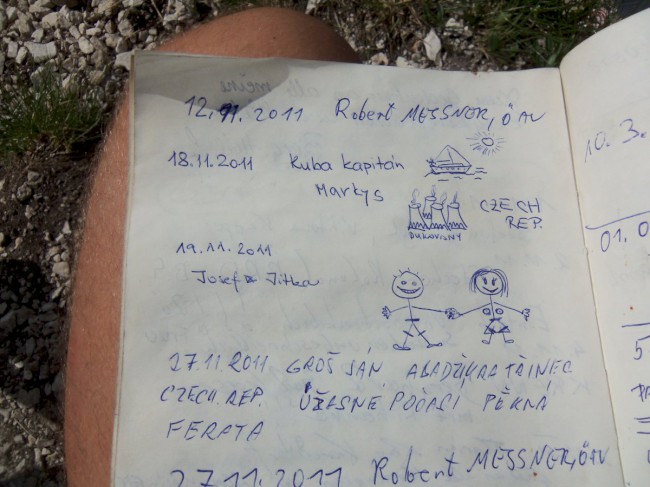 12. 11. 2011 Robert MESSNER, ÖAV
18.11.2011 Kuba kapitán
Markys
CZECH
REP.
DUKOVANY
19.11.2011
Josef Jitka
27.11.2011 GROŠ JÁN TŘINEC
CZECH REP. ÚŽASNÉ POČASÍ PĚKNÁ
FERATA
27.11.2011 Robert MESSNER, ÖAV
10. 3.
01. 0
5